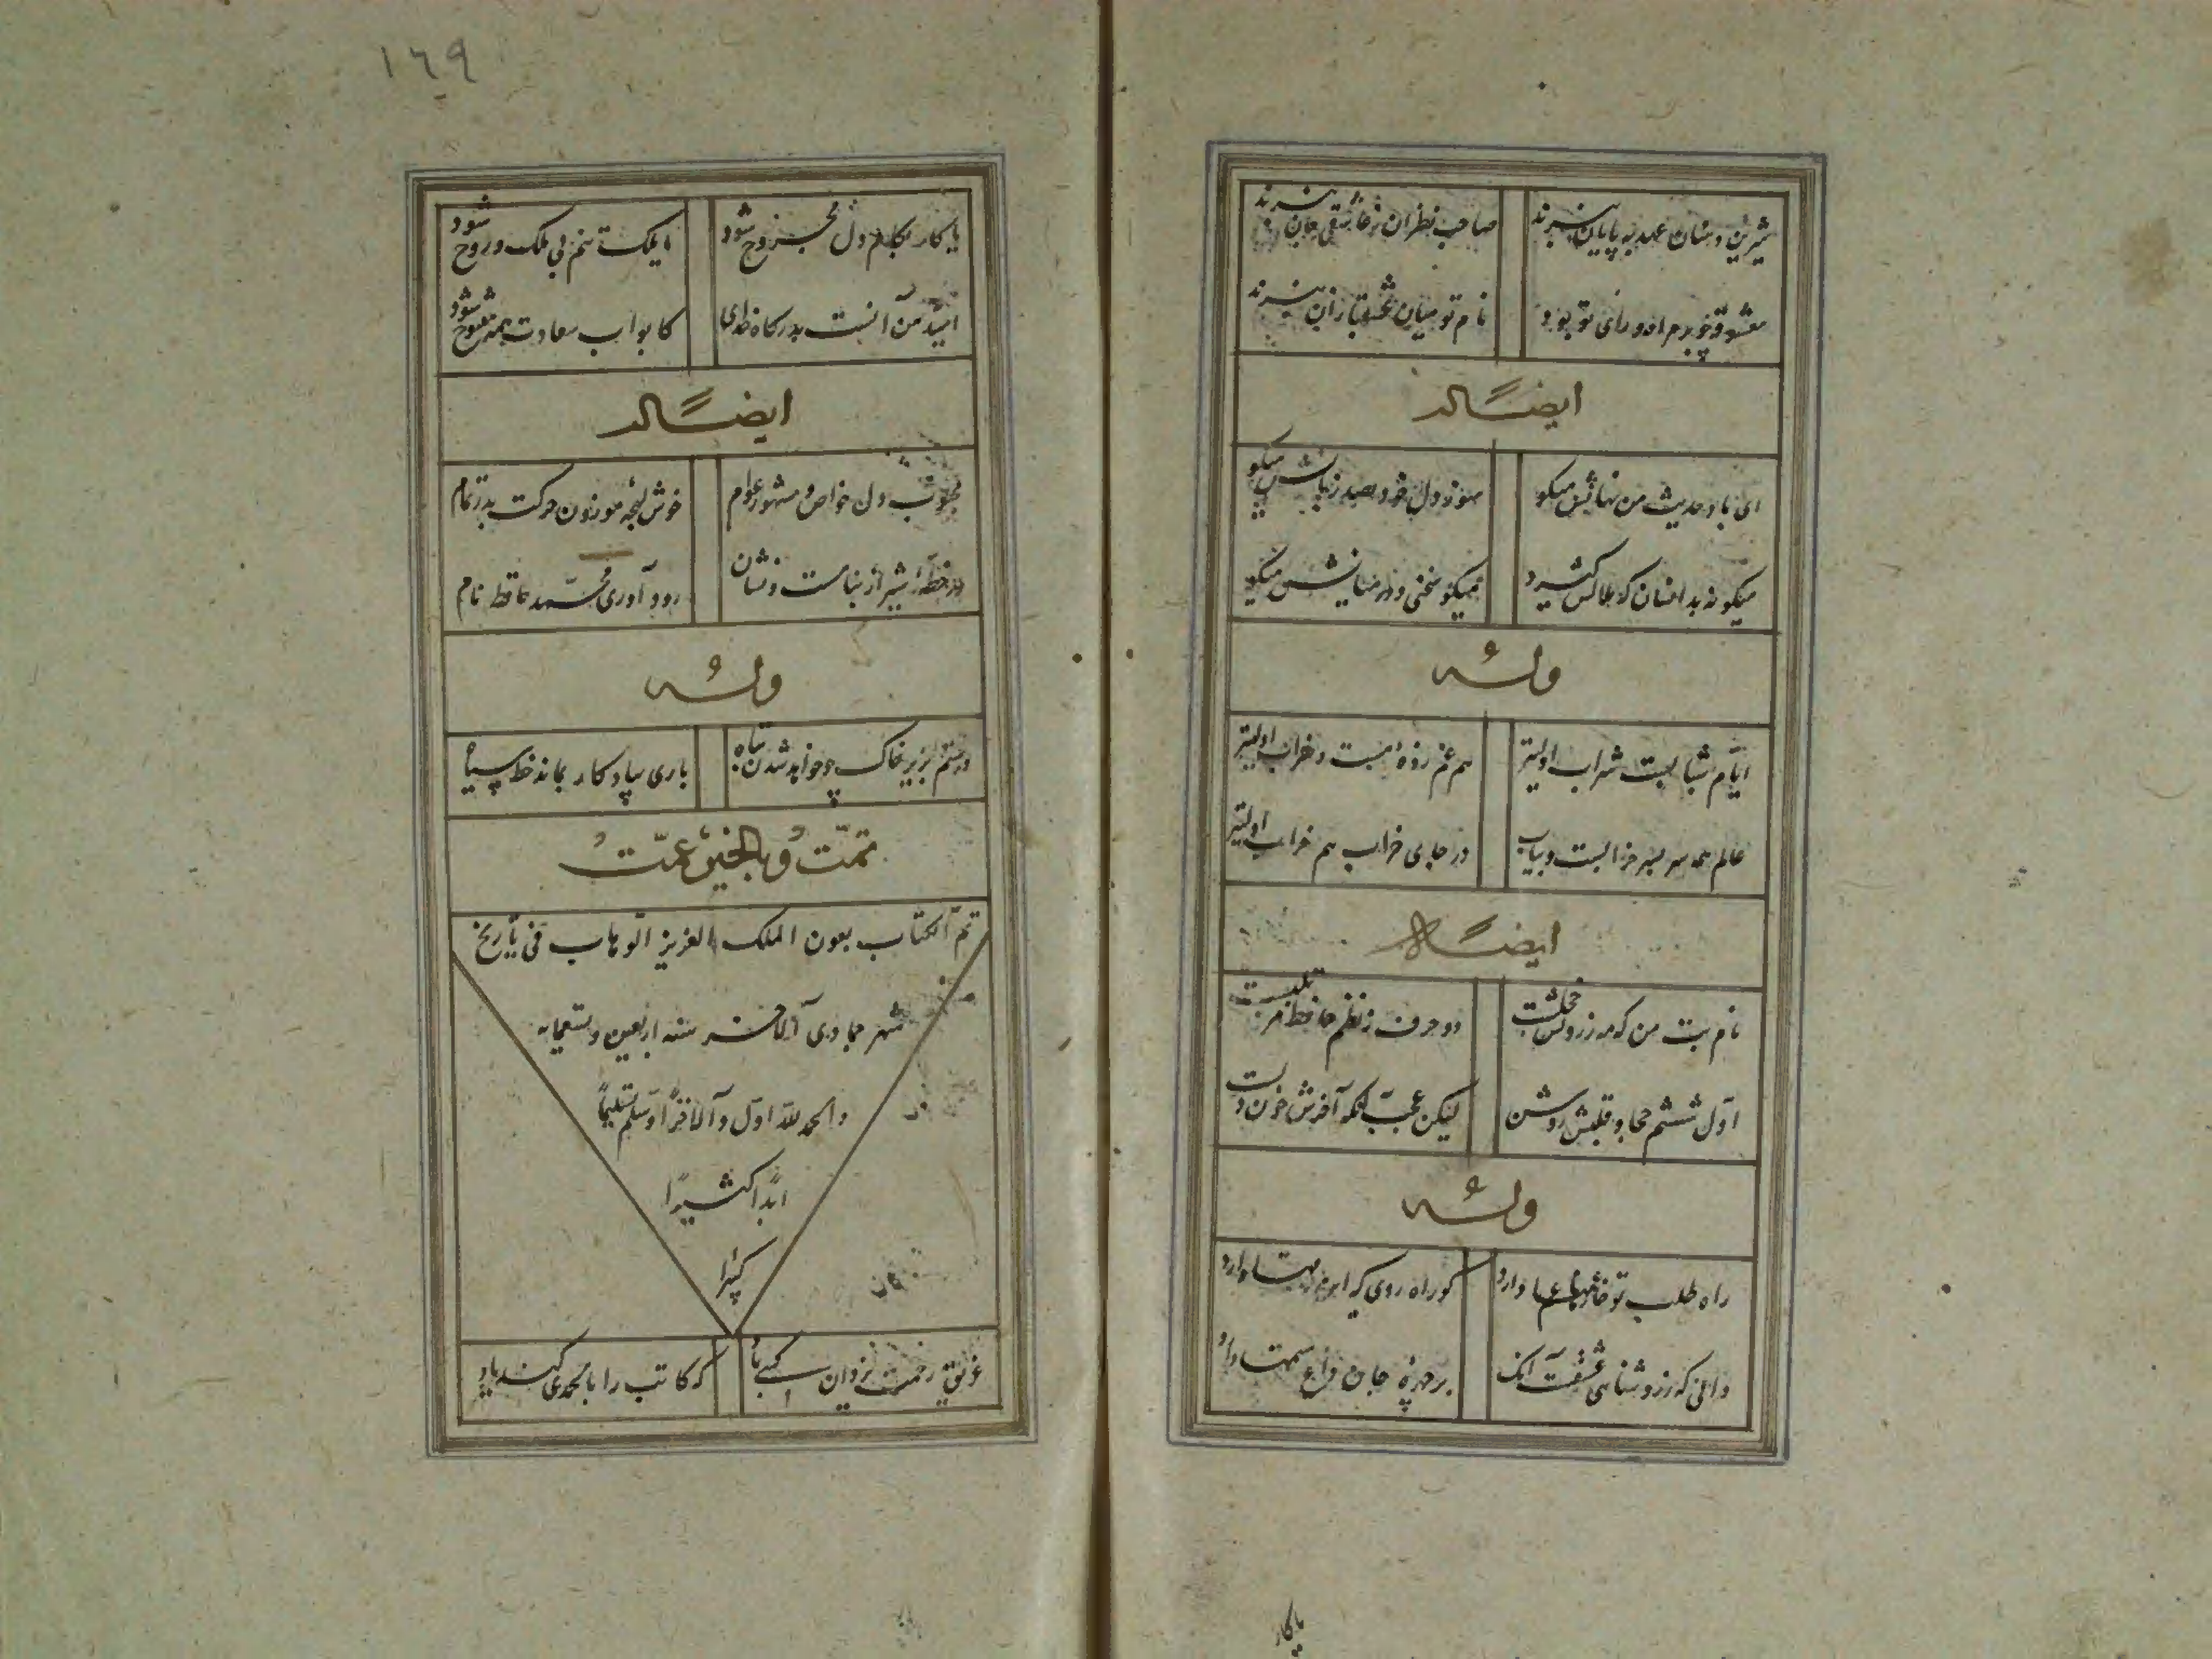 شیرین دهنان عهد بپایان نبرند
صاحب نظران ز عاشقی جان نبرند
معشوقه چو بر مراد و رای تو بود
نام تو میان عشقبازان نبرند
ایضاً له
ای باد حدیث من نهانش میکو
سوز دل خود بصد زبانش میکو
میکو نه بدانسان که ملالش کیرد
میکو سخنی و در میانش میکو
وله
ایام شبابست شراب اولیتر
هم غم زده مست و خراب اولیتر
عالم همه سر بسر خرابست و بیاب
در جای خراب هم خراب اولیتر
ایضاً له
نام بت من که مه ز رویش خجلست
دو حرف ز نظم حافظ
اول ششم جا و قلبش روشن
لیکن عجب آنکه آخرش خون دلست
وله
راه طلب تو خار غمها دارد
کو راه روی که این قدمها دارد
دانی که ز روشناس عشقست آنک
بر چهره جان داغ ستمها دارد
یا کار
۱۶۹
یا کار بکام دل مجروح شود
یا ملک تنم بی ملک روح شود
امید من آنست بدرکاه خدای
کابواب سعادت همه مفتوح شود
ایضاً له
محبوب دل خواص و مشهور عوام
خوش لهجه موزون حرکت بدر تمام
در خطه شیراز بنامست و نشان
رود آوری محمد حافظ نام
وله
دستم بزیر خاک چو خواهد شدن تباه
باری بیادکار بماند خط سیاه
تمت و بالخیر عمت
تم الکتاب بعون الملک العزیز الوهاب فی تاریخ
شهر جمادی الآخر سنه اربعین و تسعمایه
والحمد لله اول والآخرا وسلم تسلیما
ابدا کثیرا
کثیرا
غریق رحمت یزدان کسی باد
که کاتب را بالحمدی کند یاد